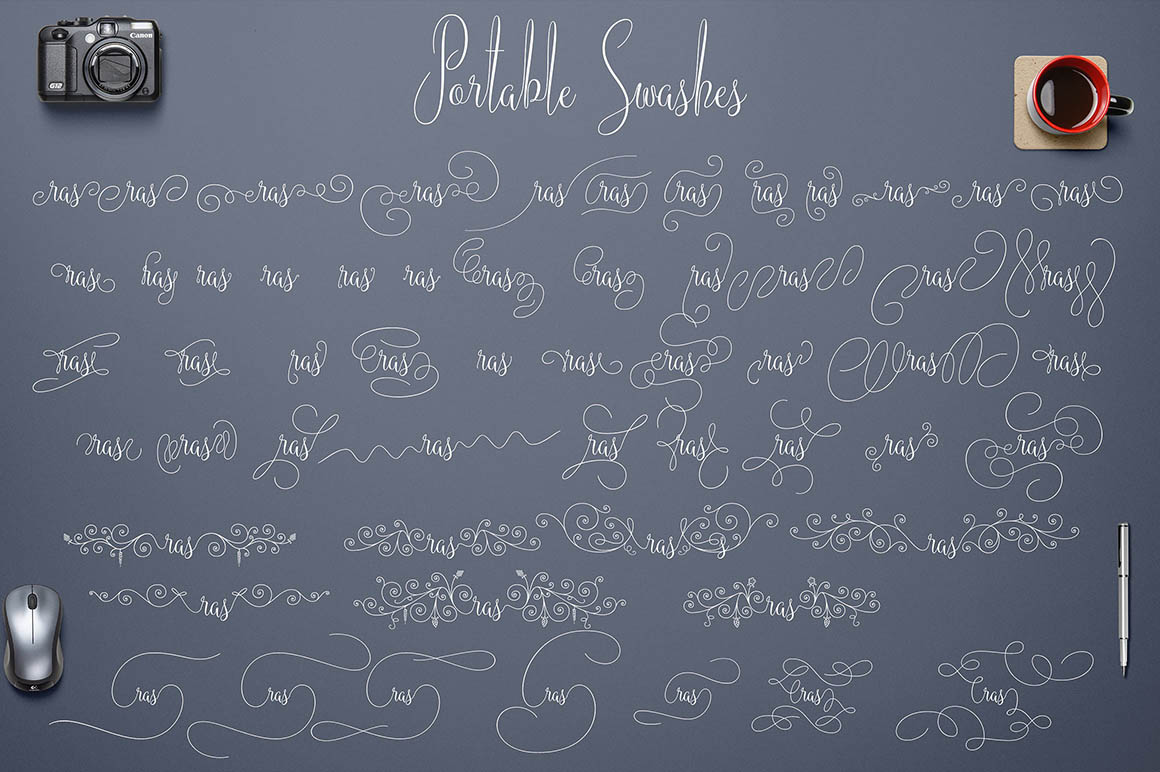 Portable Swashes
Canon
G12
ras ras ras ras ras ras ras ras ras ras ras ras
ras ras ras ras ras ras ras ras ras ras ras ras
ras ras ras ras ras ras ras ras ras ras
ras ras ras ras ras ras ras ras ras
ras ras ras s ras
ras ras ras
ras ras ras ras ras ras ras